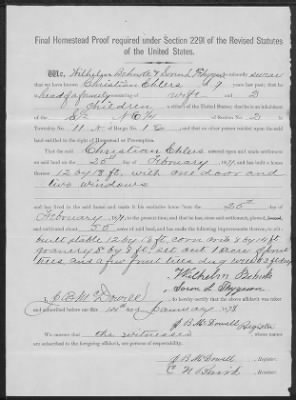 Final Homestead Proof required under Section 2291 of the Revised Statutes
of the United States.
We, Wilhelm Behnk & Soren L Thygeson solemnly swear
that we have known Christian Ehlers 9 years last past; that he
head of a family consisting of wife and 2
children a citizen of the United States; that he is an inhabitant
of the S½ NE¼ of Section No. 2 in
Township No. 11 N of Range No. 1 E and that no other person resided upon the said
land entitled to the right of Homestead or Pre-emption.
That the said Christian Ehlers entered upon and made settlement
on said land on the 25th day of February 1871, and has built a house thereon
12 by 18 ft. with one door and
two windows
and has lived in the said house and made it his exclusive home from the 25th day of
February 1871, to the present time; and that he has, since said settlement, plowed,
and cultivated about 35 acres of said land, and has made the following improvements thereon, viz:
built stable 12 by 16 ft, corn crib 8 by 14 ft
granary 8 by 8 ft, set out 1 acre of forest
trees and a few fruit trees dug well 23 ft deep
Wilhelm Behnk
Soren L Thygeson
I, J B McDowell do hereby certify that the above affidavit was taken
and subscribed before me this day of January 1878
J B McDowell Register
We certify that the witnesses whose names
are subscribed to the foregoing affidavit, are persons of respectability.
J B McDowell, Register.
, Receiver.